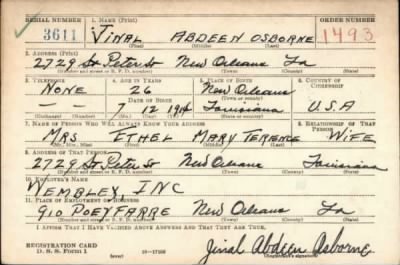 SERIAL NUMBER 1. Name (Print) ORDER NUMBER
3611 Jinal ABDEEN OSBORNE 1493
(First) (Middle) (Last)
2. Address (Print)
2729 St Peter St New Orleans La
(Number and street or R. F. D. number) (Town) (County) (State)
3. Telephone 4. Age in Years 5. Place of Birth 6. Country of Citizenship
NONE 26 New Orleans
Date of Birth (Town or county)
— — 7 12 1914 Louisiana U.S.A
(Mo.) (Day) (Yr.) (State or country)
7. Name of Person Who Will Always Know Your Address 8. Relationship of That Person
MRS ETHEL MARY TERENCE WIFE
(Mr., Mrs., Miss) (First) (Middle) (Last)
9. Address of That Person
2729 St Peter St New Orleans Louisiana
(Number and street or R. F. D. number) (Town) (County) (State)
10. Employer's Name
WEMBLEY, INC
11. Place of Employment or Business
910 POEYFARRE New Orleans La
(Number and street or R. F. D. number) (Town) (County) (State)
I Affirm That I Have Verified Above Answers and That They Are True.
REGISTRATION CARD
D. S. S. Form 1 (over) Jinal Abdeen Osborne
(Registrant's signature)